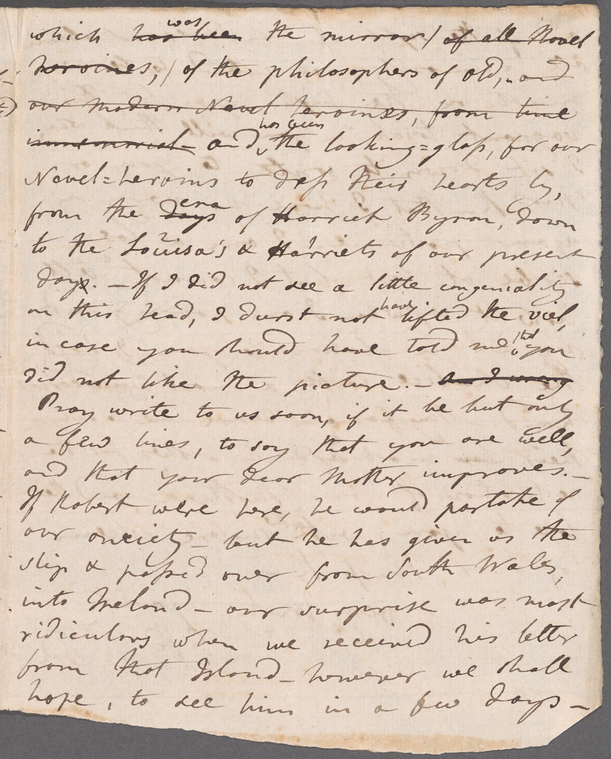 which has been was the mirror / of all Novel
heroines, / of the philosophers of old, and
our modern Novel heroines, from time
immemorial - and, has been the looking=glass, for our
Novel=heroins to dress their hearts by,
from the days era of Harriet Byron, down
to the Louisa's & Harriets of our present
days. - If I did not see a little congeniality
on this head, I durst not have lifted the viel,
in case you should have told me, that you
did not like the picture. - and
Pray write to us soon, if it be but only
a few lines, to say that you are well,
and that your dear Mother improves. -
If Robert were here, he would partake of
our anxiety - but he has given us the
slip & passed over from South Wales,
into Ireland - our surprise was most
ridiculous when we received his letter
from that Island - however we shall
hope, to see him in a few days -